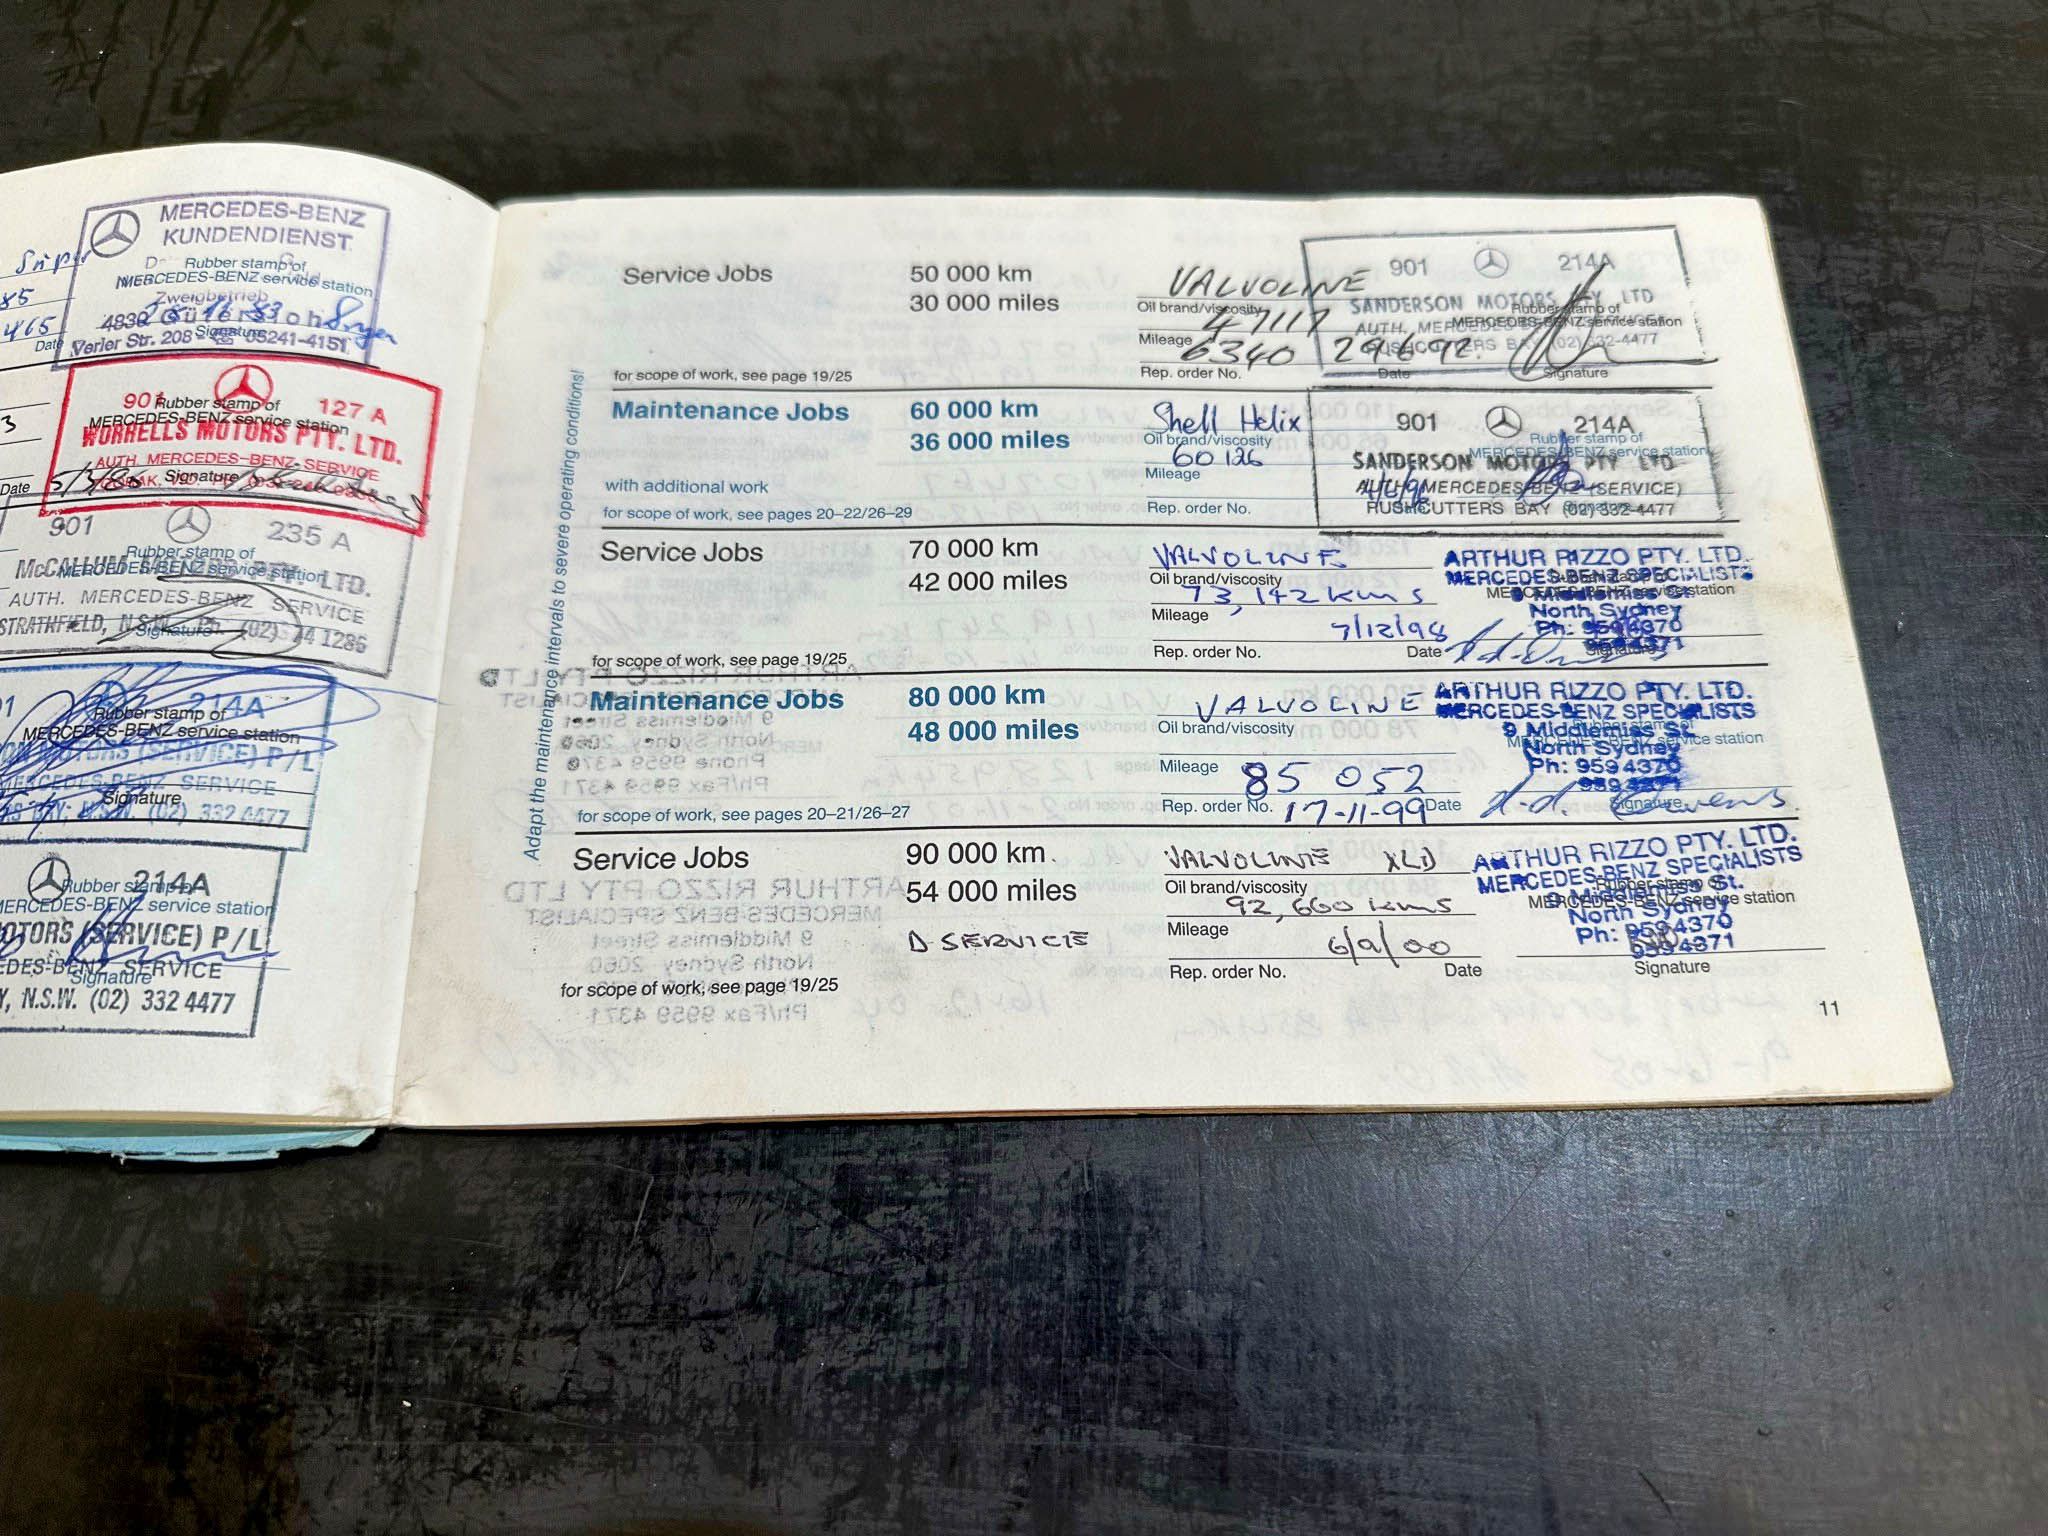 Super
85
465
Date
MERCEDES-BENZ
KUNDENDIENST
Rubber stamp of
MERCEDES-BENZ service station
Zweigbetrieb
4830 Gütersloh
Signature
Verler Str. 208 05241-4151
3
Date
5/3/86
901 127 A
Rubber stamp of
MERCEDES-BENZ service station
WORRELLS MOTORS PTY. LTD.
AUTH. MERCEDES-BENZ SERVICE
Signature
901 235 A
Rubber stamp of
McCALLUM PTY. LTD.
MERCEDES-BENZ service station
AUTH. MERCEDES-BENZ SERVICE
STRATHFIELD, N.S.W. Ph. (02) 74 1286
Signature
214A
Rubber stamp of
MERCEDES-BENZ service station
MOTORS (SERVICE) P/L
MERCEDES-BENZ SERVICE
Signature
BAY, N.S.W. (02) 332 4477
214A
Rubber stamp of
MERCEDES-BENZ service station
MOTORS (SERVICE) P/L
SERVICE
Signature
N.S.W. (02) 332 4477
Adapt the maintenance intervals to severe operating conditions!
Service Jobs
50 000 km
30 000 miles
for scope of work, see page 19/25
VALVOLINE
Oil brand/viscosity
47117
Mileage
6340 29 6 92
Rep. order No.
Date
901 214A
SANDERSON MOTORS PTY LTD
Rubber stamp of
MERCEDES-BENZ service station
RUSHCUTTERS BAY (02) 332-4477
Signature
Maintenance Jobs
60 000 km
36 000 miles
with additional work
for scope of work, see pages 20–22/26–29
Shell Helix
Oil brand/viscosity
60126
Mileage
Rep. order No.
901 214A
Rubber stamp of
MERCEDES-BENZ service station
SANDERSON MOTORS PTY LTD
AUTH. MERCEDES-BENZ (SERVICE)
RUSHCUTTERS BAY (02) 332-4477
Service Jobs
70 000 km
42 000 miles
for scope of work, see page 19/25
VALVOLINE
Oil brand/viscosity
73,142 kms
Mileage
7/12/98
Rep. order No.
Date
ARTHUR RIZZO PTY. LTD.
MERCEDES-BENZ SPECIALISTS
MERCEDES-BENZ service station
9 Middlemiss St.
North Sydney
Ph: 959 4370
959 4371
Signature
Maintenance Jobs
80 000 km
48 000 miles
for scope of work, see pages 20–21/26–27
VALVOLINE
Oil brand/viscosity
Mileage
85 052
Rep. order No.
17-11-99
Date
ARTHUR RIZZO PTY. LTD.
MERCEDES-BENZ SPECIALISTS
Rubber stamp of
9 Middlemiss St.
MERCEDES-BENZ service station
North Sydney
Ph: 959 4370
959 4371
Signature
Service Jobs
90 000 km
54 000 miles
D SERVICE
for scope of work, see page 19/25
VALVOLINE XLD
Oil brand/viscosity
92,660 kms
Mileage
6/9/00
Rep. order No.
Date
ARTHUR RIZZO PTY. LTD.
MERCEDES-BENZ SPECIALISTS
Rubber stamp of
9 Middlemiss St.
MERCEDES-BENZ service station
North Sydney
Ph: 959 4370
959 4371
Signature
11